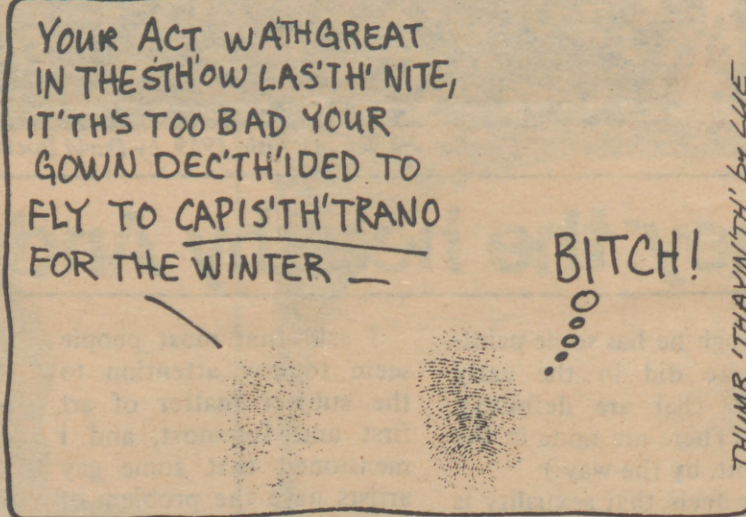 YOUR ACT WA'TH GREAT
IN THE S'TH'OW LAS'TH' NITE,
IT'TH'S TOO BAD YOUR
GOWN DEC'TH'IDED TO
FLY TO CAPIS'TH'TRANO
FOR THE WINTER —
BITCH!
THUMB 'THAVIN'TH' by LUE